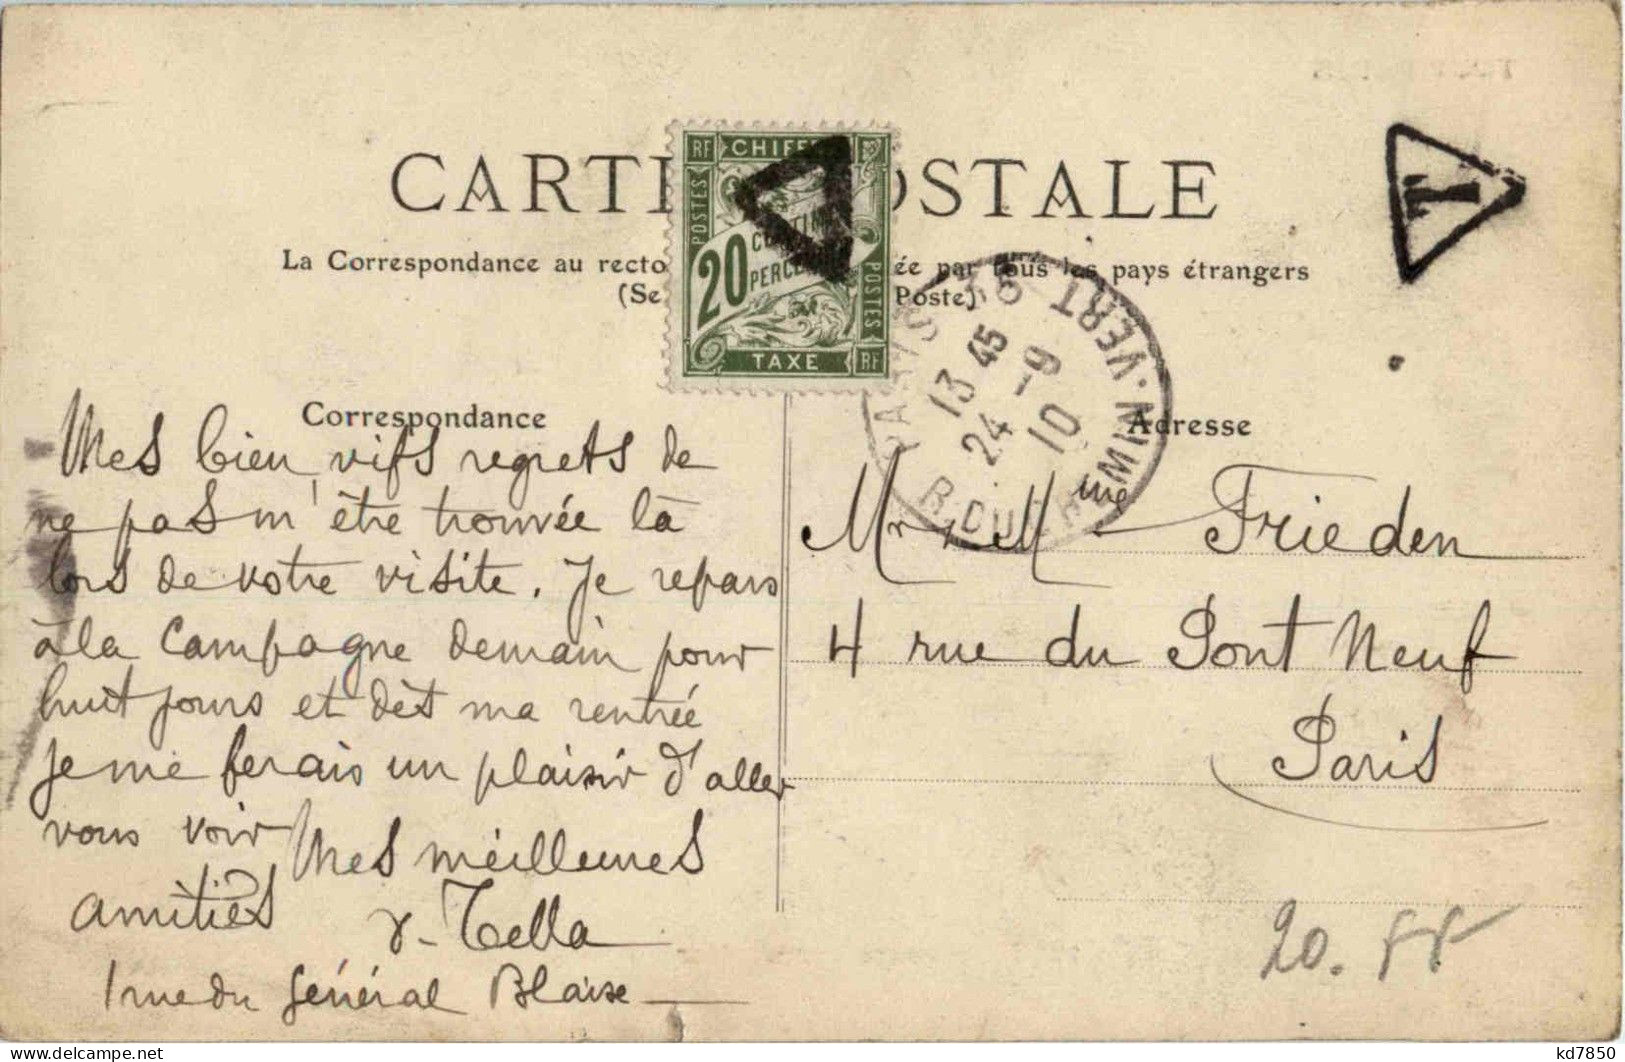 CARTE POSTALE
La Correspondance au recto ée par tous les pays étrangers
(Se Poste)
RF CHIFF
POSTES
20 CENTIMES
PERCEVOIR
POSTES
TAXE RF
T
PARIS
13 45
24 -9
10
R. DU CHEMIN-VERT
Correspondance
Mes bien vifs regrets de
ne pas m'être trouvée là
lors de votre visite. Je repars
à la campagne demain pour
huit jours et dès ma rentrée
je me ferais un plaisir d'aller
vous voir Mes meilleures
amitiés
Y- Tella
1 rue du Général Blaise
Adresse
Mr et Mme Frieden
4 rue du Pont Neuf
Paris
20. FF
kd7850